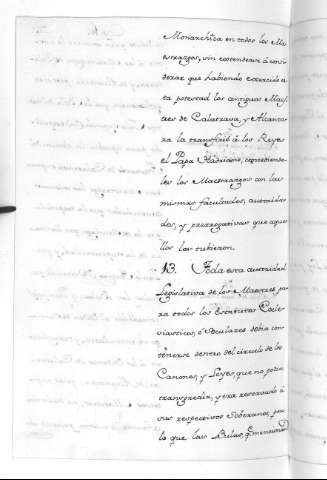 Monarchica en todos los Ma
estrazgos, sin extenderse á consi
derar que habiendo exercido es
ta potestad los antiguos Maes
tres de Calatrava, y Alcanta
ra la transfirió á los Reyes
el Papa Hadriano, concediendo
les los Maestrazgos con las
mismas facultades, autorida
des, y prerrogativas que aque
llos las tubieron.
13. Toda esta autoridad
Legislativa de los Maestres pa
ra todos los Estatutos Ecle
siasticos, ó Seculares debia con
tenerse dentro del circulo de los
Canones, y Leyes, que no podia
transgredir, y era reservado á
sus respectivos Soberanos, por
lo que las Bulas,